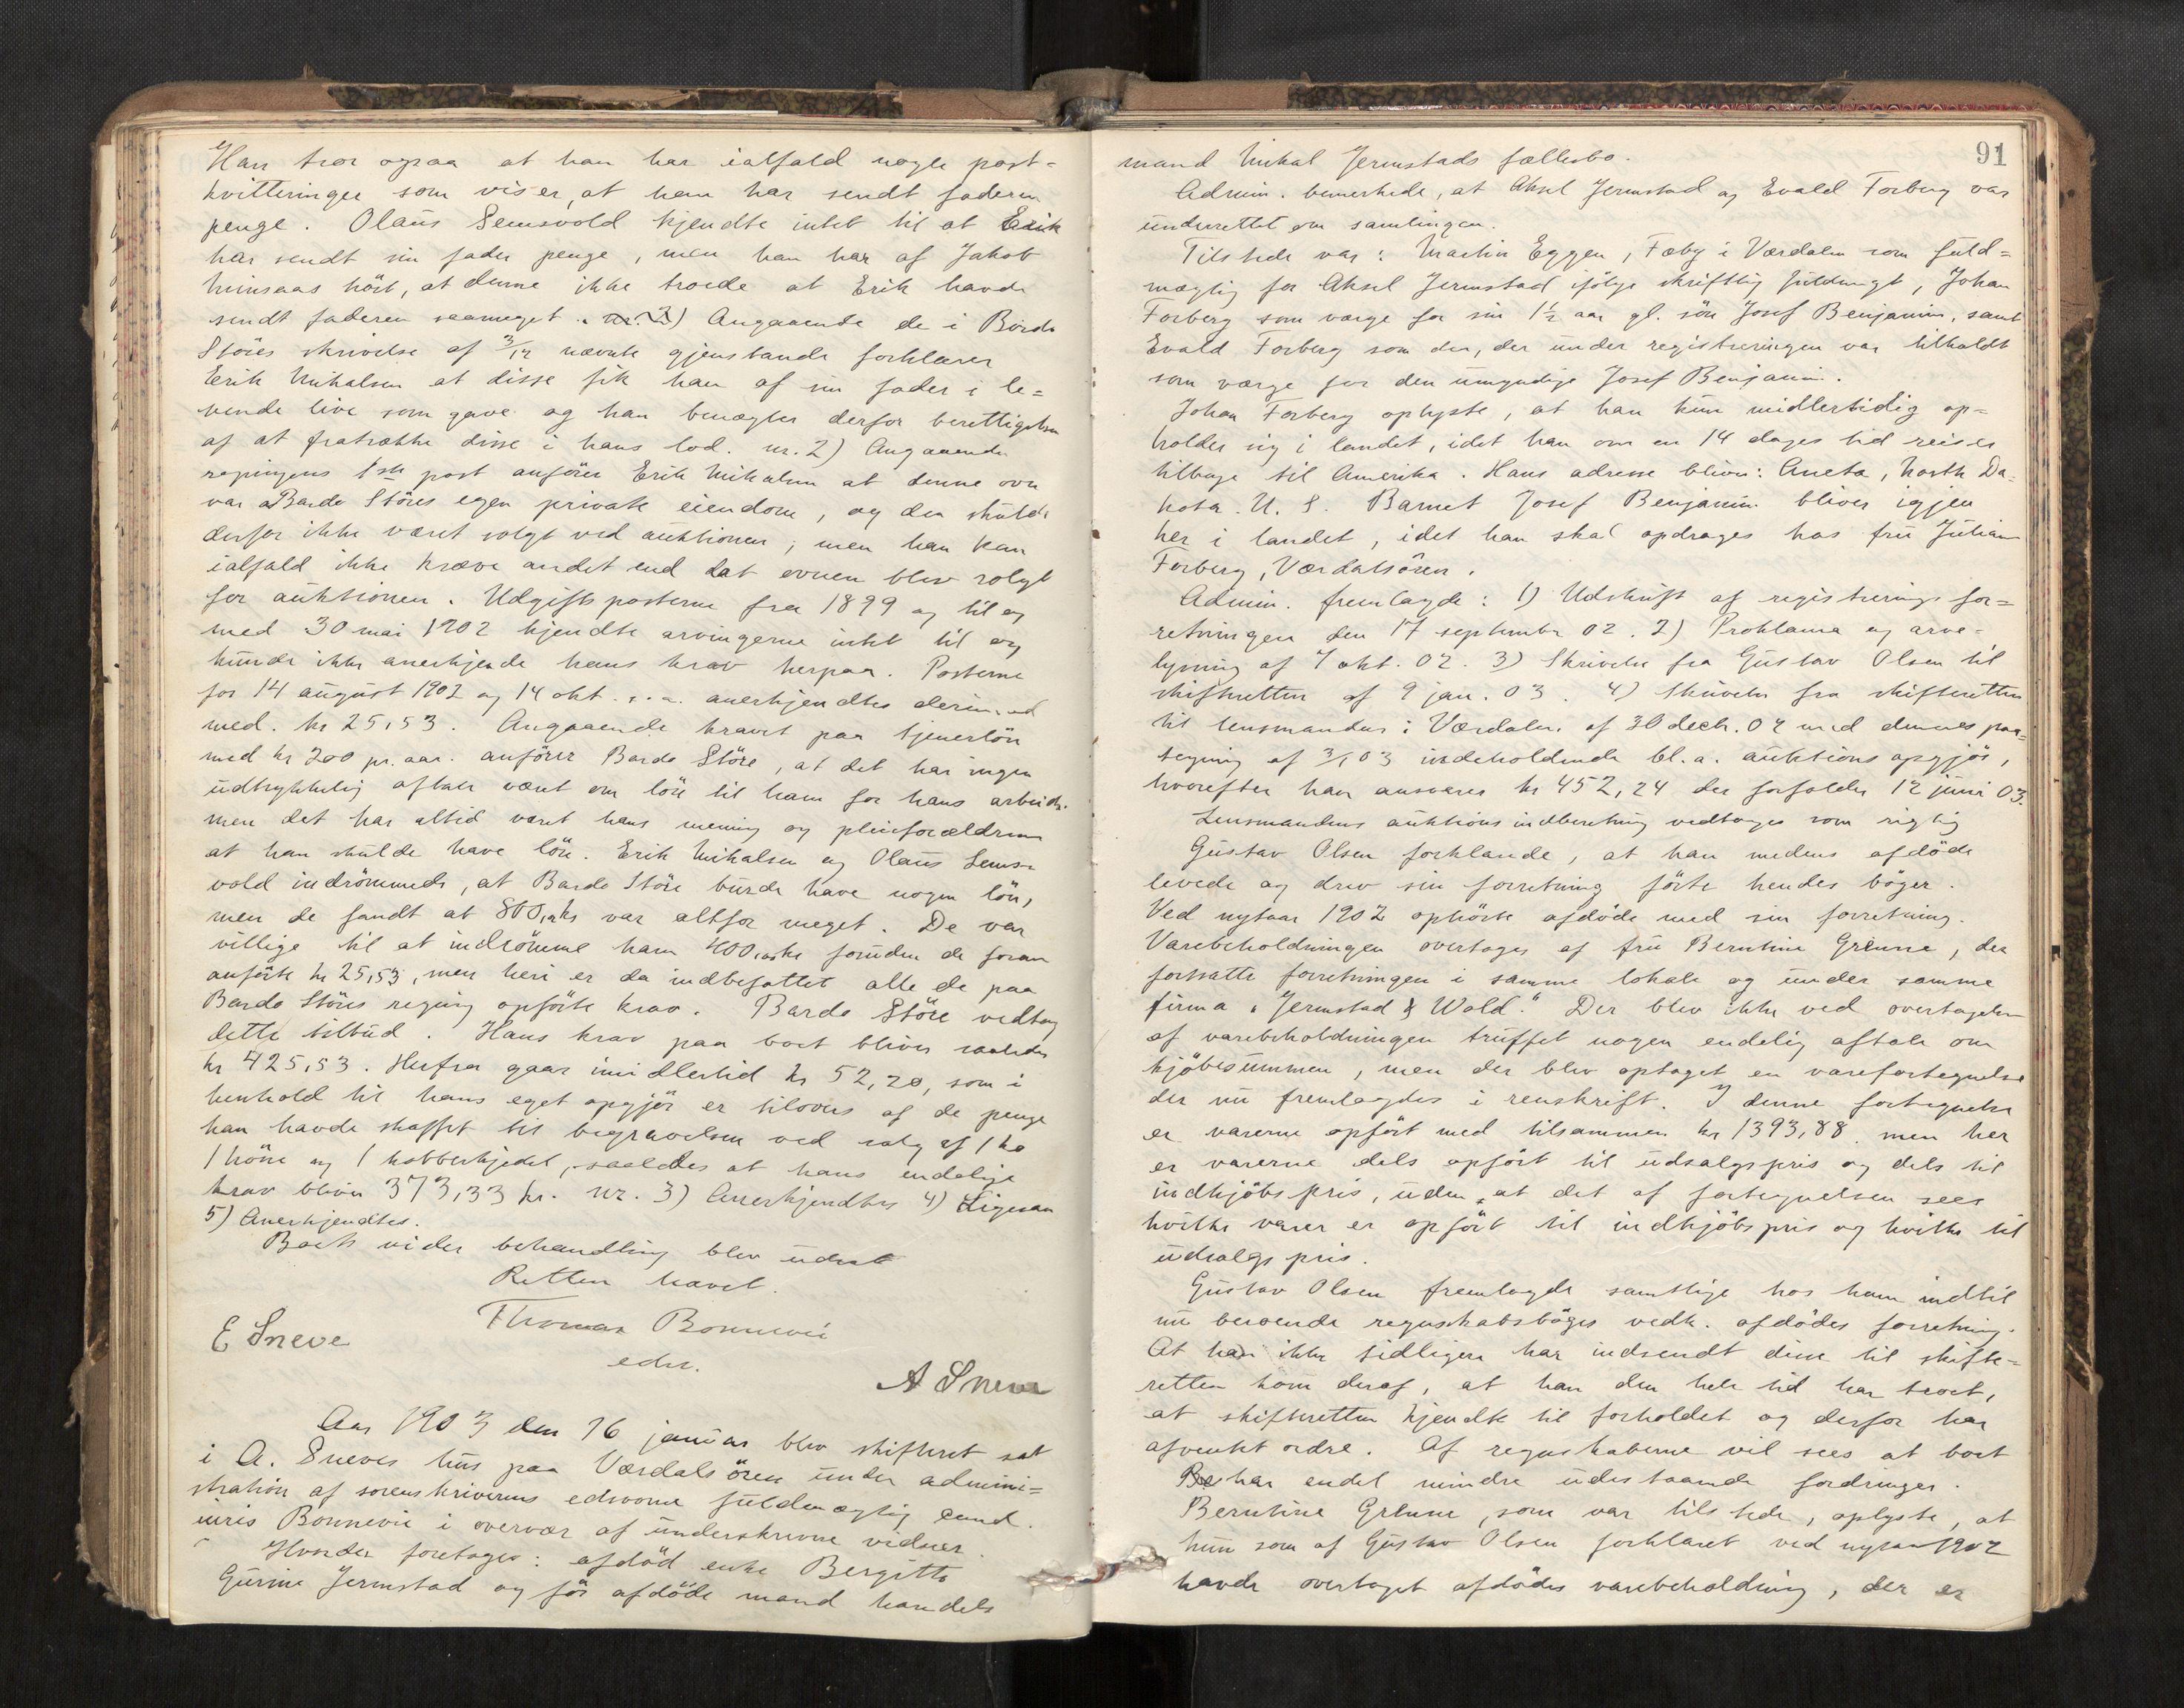 Han tror ogsaa at han har ialfald nogle post-
kvitteringer som viser, at han har sendt faderen
penge. Olaus Semsvold kjendte intet til at Erik
har sendt sin fader penge, men han har af Jakob
hört, at denne ikke troede at Erik havde
sendt faderen saameget. Angaaende de i Bardo
Störes skrivelse af 3/12 nævnte gjenstande forklarer
Erik Mikalsen at disse fik han af sin fader i le=
vende live som gave og han benægter derfor berettigelsen
af at fratrække disse i hans lod. nr. 2) Angaaende
regningens 1ste post anförer Erik Mikalsen at denne ovn
var Bardo Störes egen private eiendom, og den skulde
derfor ikke været solgt ved auktionen; men han kan
ialfald ikke kræve andet end det ovnen blev solgt
for auktionen. Udgiftsposterne fra 1899 og til og
med 30 mai 1902 kjendte arvingerne intet til og
kunde ikke anerkjende hans krav herpaa. Posterne
for 14 august 1902 og 14 okt. s. a. anerkjendtes derimod
med kr 25,53. Angaaende kravet paa tjenerlön
med kr 200 pr. aar. anförer Bardo Störe, at det har ingen
udtrykkelig aftale været om lön til ham for hans arbeide.
men det har altid været hans mening og pleieforældrenes
at han skulde have lön. Erik Mikalsen og Olaus Sems-
vold indrömmede, at Bardo Störe burde have nogen lön,
men de fandt at 800,00 kr var altfor meget. De var
villige til at indrömme ham 400,00 kr foruden de foran
anförte kr 25,53, men heri er da indbefattet alle de paa
Bardo Störes regning opförte krav. Bardo Störe vedtog
dette tilbud. Hans krav paa boet bliver saaledes
kr 425,53. Herfra gaar imidlertid kr 52,20, som i
henhold til hans eget opgjör er tilovers af de penge
han havde skaffet til begravelsen ved salg af 1 ko
1 höne og 1 kobberkjedel, saaledes at hans endelige
krav bliver 373,33 kr. nr. 3) Anerkjendtes 4) Ligesaa
5) Anerkjendtes.
Boets vider behandling blev udsat
Retten hævet.
Thomas Bonnevie
edsv.
E Sneve
A Sneve
Aar 1903 den 16 januar blev skifteret sat
i A. Sneves hus paa Værdalsören under admini=
stration af sorenskriverens edsvorne fuldmægtig cand.
iuris Bonnevie i overvær af underskrevne vidner.
Hvorder foretoges: afdöd enke Bergitte
Gurine Jermstad og för afdöde mand handels
91
mand Mikal Jermstads fællesbo.
Admin. bemerkede, at Aksel Jermstad og Evald Forberg var
underrettet om samlingen.
Tilstede var: Martin Eggen, Fæby i Værdalen som fuld=
mægtig for Aksel Jermstad ifölge skriftlig fuldmagt, Johan
Forberg som værge for sin 1½ aar gl. sön Josef Benjamin, samt
Evald Forberg som den, der under registreringen var tilkaldt
som værge for den umyndige Josef Benjamin.
Johan Forberg oplyste, at han kun midlertidig op=
holder sig i landet, idet han om en 14 dages tid reiser
tilbage til Amerika. Hans adresse bliver: Aneta, North Da=
kota. U. S. Barnet Josef Benjamin bliver igjen
her i landet, idet han skal opdrages hos fru Juliane
Forberg, Værdalsören.
Admin. fremlagde: 1) Udskrift af registreringsfor=
retningen den 17 september 02. 2) Proklama og arve-
lysning af 7 okt. 02. 3) Skrivelse fra Gustav Olsen til
skifteretten af 9 jan. 03. 4) Skrivelse fra skifteretten
til lensmanden i Værdalen af 30 decbr. 02 med dennes paa=
tegning af 3/1 03 indeholdende bl. a. auktionsopgjör,
hvorefter han ansvarer kr 452,24 der forfalder 12 juni 03.
Lensmandens auktionsindberetning vedtoges som rigtig
Gustav Olsen forklarede, at han medens afdöde
levede og drev sin forretning förte hendes böger.
Ved nytaar 1902 ophörte afdöde med sin forretning.
Varebeholdningen overtoges af fru Berntine Grinne, der
fortsatte forretningen i samme lokale og under samme
firma "Jermstad & Wold." Der blev ikke ved overtagelsen
af varebeholdningen truffet nogen endelig aftale om
kjöbesummen, men der blev optaget en varefortegnelse
der nu fremlagdes i renskrift. I denne fortegnelse
er varerne opfört med tilsammen kr 1393,88. men her
er varerne dels opfört til udsalgspris og dels til
indkjöbspris, uden at det af fortegnelsen sees
hvilke varer er opfört til indkjöbspris og hvilke til
udsalgspris.
Gustav Olsen fremlagde samtlige hos ham indtil
nu beroende regnskabsböger vedk. afdödes forretning.
At han ikke tidligere har indsendt disse til skifte=
retten kom deraf, at han den hele tid har troet,
at skifteretten kjendte til forholdet og derfor har
afventet ordre. Af regnskaberne vil sees at boet
har endel mindre udestaaende fordringer.
Berntine Grinne, som var tilstede, oplyste, at
hun som af Gustav Olsen forklaret ved nytaar 1902
havde overtaget afdödes varebeholdning, der er